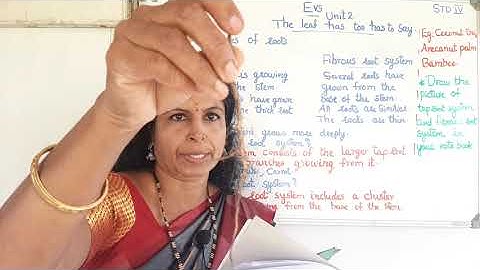 EVS
STD IV
Unit 2
The leaf has too has to say
es of roots
Fibrous root system
is growing
Several roots have
the stem
grown from the
s have grown
base of the stem
the thick root
All roots are similar
The roots are thin
grows more deeply.
root system?
consists of the larger tap root
branches growing from it
root system?
root system includes a cluster
from the base of the stem
Eg: Coconut tree
Arecanut palm
Bamboo
* Draw the
picture of
taproot system
and fibrous root
system in
your note book